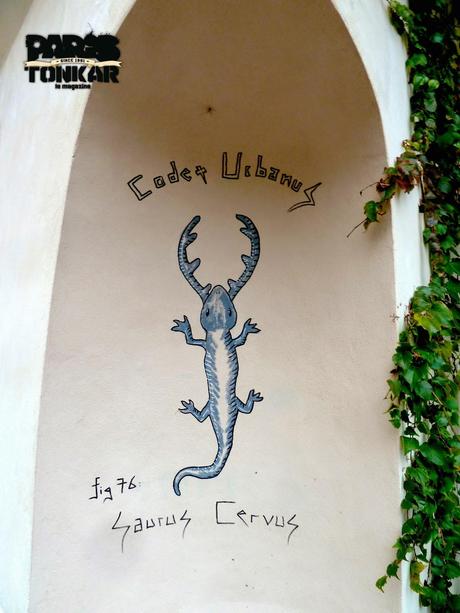 PARIS
SINCE 1991
TONKAR
le magazine
Codex Urbanus
fig 76:
Saurus Cervus